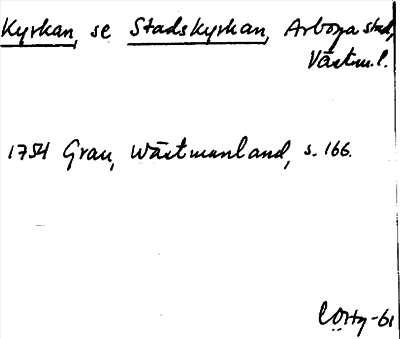 Kyrkan, se Stadskyrkan, Arboga stad,
Västm.l.
1754 Grau, Wästmanland, s. 166.